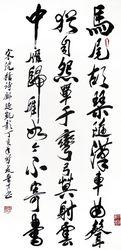 馬尾胡琴隨漢車曲聲
猶自怨單于彎弓莫射雲
中雁歸雁如今不寄書
宋沈括詩鄜延凱歌丁亥